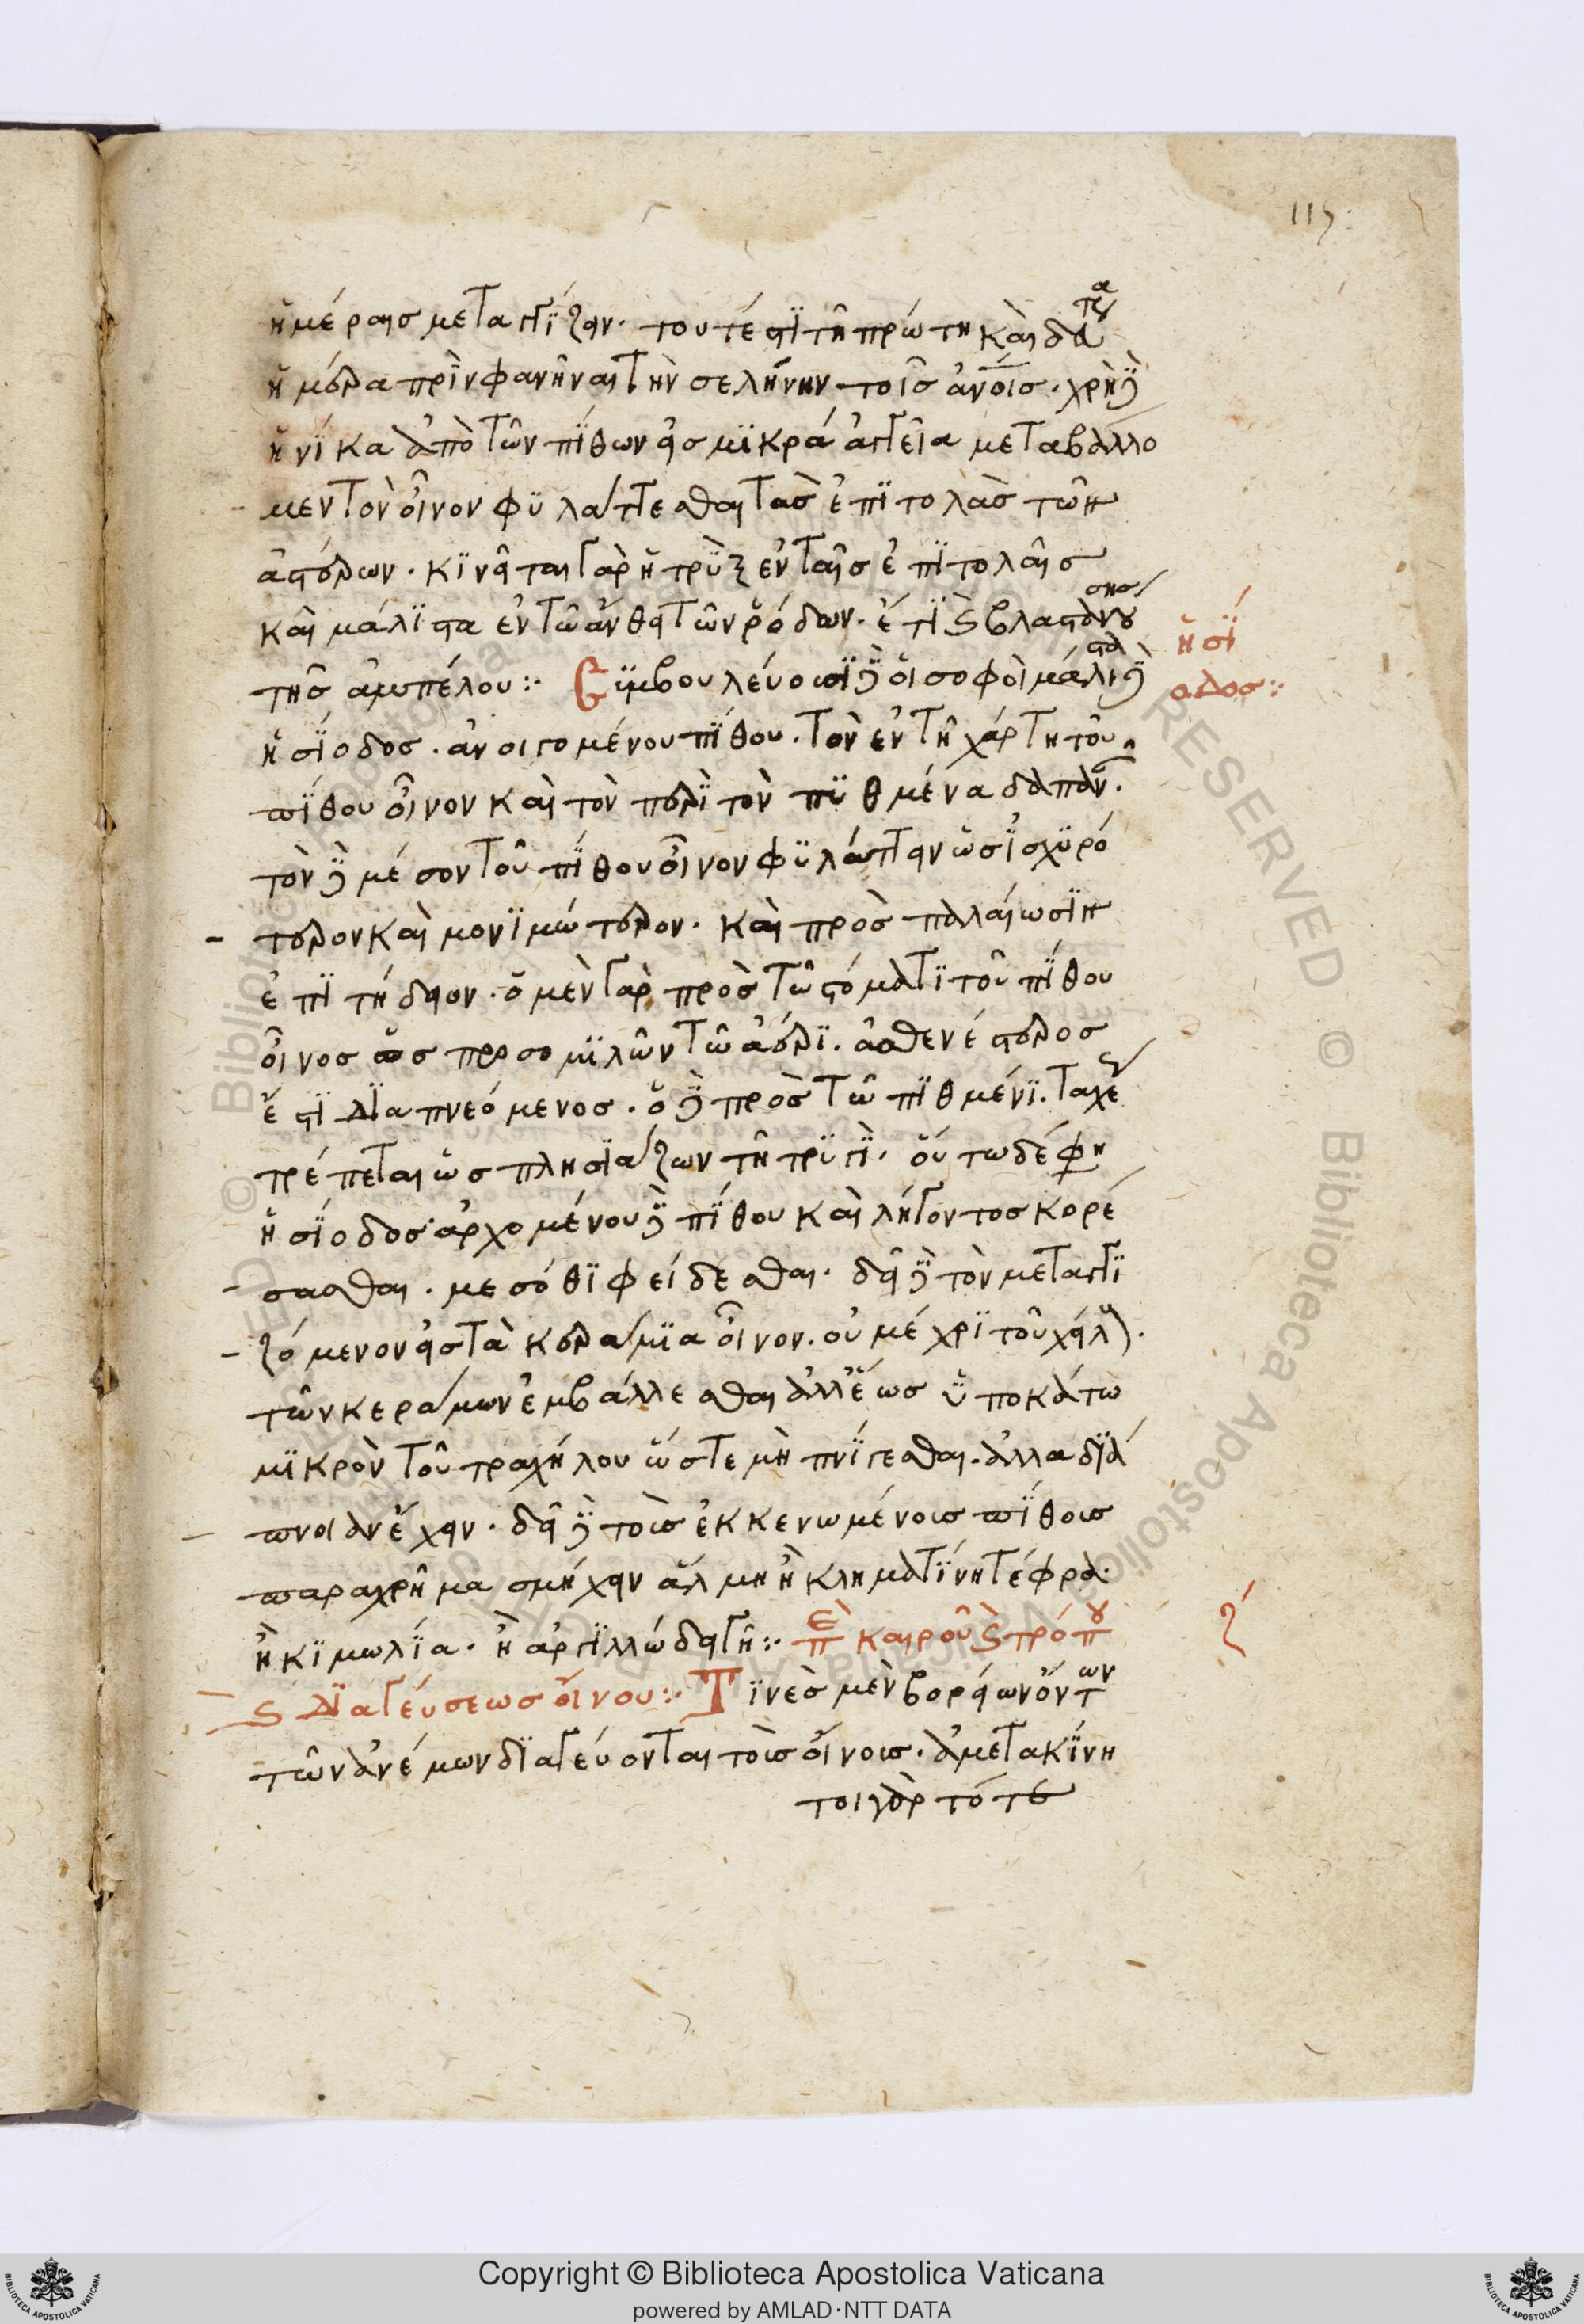 115.
ἡμέραις μεταγγίζειν. τουτέστι τῆ πρώτη καὶ δευτέρα
ἡμέρα πρὶν φανῆναι τὴν σελήνην τοῖς ἀνοις. χρὴ δὲ
ἡνίκα ἀπὸ τῶν πίθων εἰς μικρὰ ἀγγεῖα μεταβάλλο
μεν τὸν οἶνον φυλάττεσθαι τὰς ἐπιτολὰς τῶν
ἀστέρων. κινεῖται γὰρ ἡ τρὺξ ἐν ταῖς ἐπιτολαῖς
καὶ μάλιστα ἐν τῶ ἄνθει τῶν ῥόδων. ἔτι καὶ βλαστανούσης
τῆς ἀμπέλου :· Συμβουλεύουσι δὲ οἱ σοφοὶ μάλιστα δὲ
ἡσί
οδος :·
ἡσίοδος. ἀνοιγομένου πίθου. τὸν ἐν τῆ χάρτη τοῦ
πίθου οἶνον καὶ τὸν περὶ τὸν πυθμένα δαπανᾶν.
τὸν δὲ μέσον τοῦ πίθου οἶνον φυλάττειν ὡς ἰσχυρό
τερον καὶ μονιμώτερον. καὶ πρὸς παλαίωσιν
ἐπιτήδειον. ὁ μὲν γὰρ πρὸς τῶ στόματι τοῦ πίθου
οἶνος ὡς προσομιλῶν τῶ ἀέρι. ἀσθενέστερος
ἔστι διαπνεόμενος. ὁ δὲ πρὸς τῶ πιθμένι. ταχέως
τρέπεται ὡς πλησιάζων τῆ τρυγί. οὕτω δέ φη
ἡσίοδος ἀρχομένου δὲ πίθου καὶ λήγοντος κορέ
σασθαι. μεσόθι φείδεσθαι. δεῖ δὲ τὸν μεταγγι
ζόμενον εἰς τὰ κεράμια οἶνον. οὐ μέχρι τοῦ χείλους.
τῶν κεράμων ἐμβάλλεσθαι ἀλλ' ἕως ὑποκάτω
μικρὸν τοῦ τραχήλου ὥστε μὴ πνίγεσθαι. ἀλλα διά
πνοιαν ἔχειν. δεῖ δὲ τοῖς ἐκκενωμένοις πίθοις
παραχρῆμα σμήχειν ἅλμη ἢ κληματίνη τέφρα.
ἢ κιμωλία. ἢ ἀργιλλώδει γῆ :· περὶ καιροῦ καὶ τρόπου
ζ
καὶ διαγεύσεως οἴνου :· Τινὲς μὲν βορείων ὄντων
τῶν ἀνέμων διαγεύονται τοῖς οἴνοις. ἀμετακίνη
τοι γὰρ τότε
Copyright © Biblioteca Apostolica Vaticana
powered by AMLAD·NTT DATA